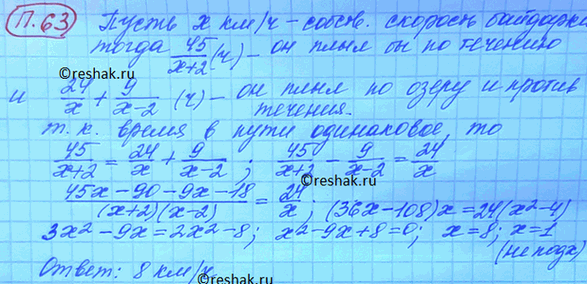 П.63 Пусть x км/ч – собств. скорость байдарки
тогда 45/(x+2) (ч) – он плыл бы по течению
©reshak.ru
и 24/x + 9/(x-2) (ч) – он плыл по озеру и против
течения.
т.к. время в пути одинаковое, то
45/(x+2) = 24/x + 9/(x-2) ; 45/(x+2) - 9/(x-2) = 24/x
(45x-90-9x-18)/((x+2)(x-2)) = 24/x ; (36x-108)x=24(x²-4)
3x²-9x=2x²-8; x²-9x+8=0; x=8; x=1
(не подх)
Ответ: 8 км/ч.
©reshak.ru